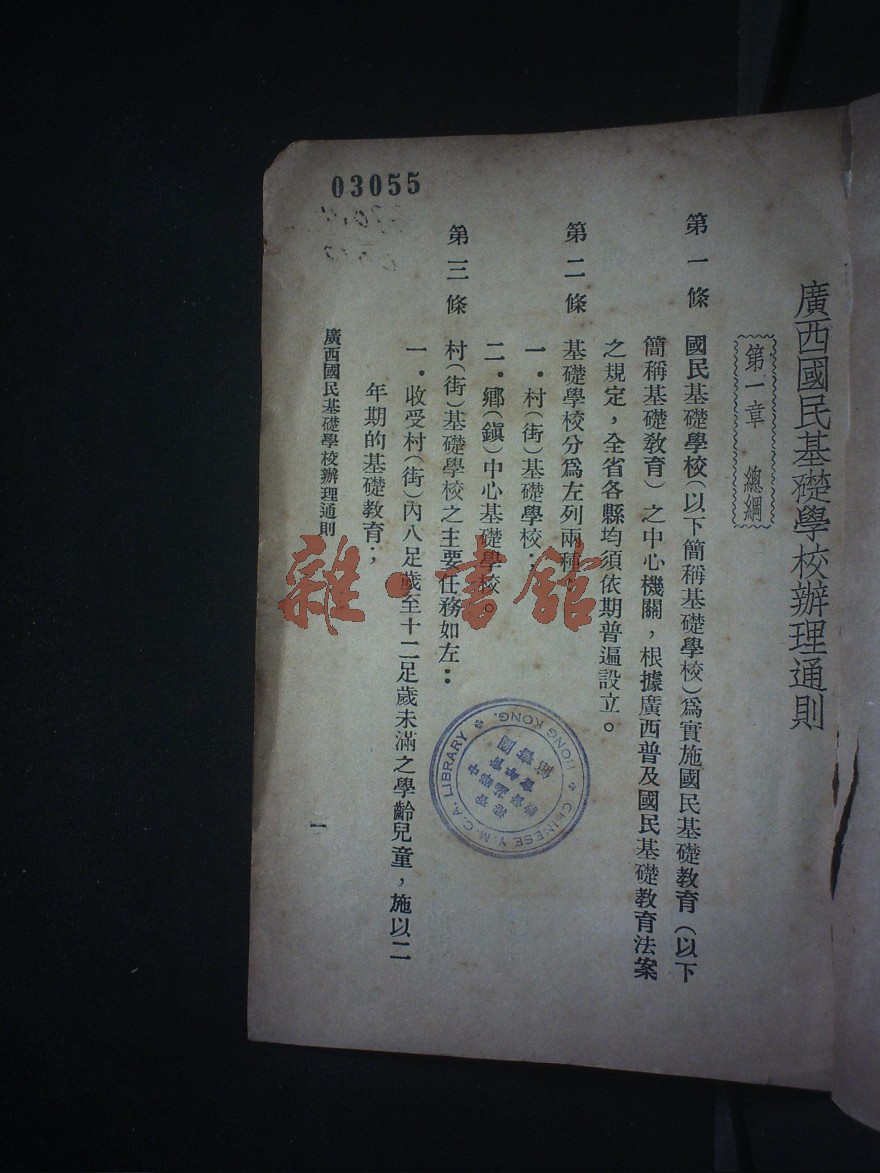 03055
廣西國民基礎學校辦理通則
第一章　總綱
第一條　國民基礎學校(以下簡稱基礎學校)爲實施國民基礎教育(以下
簡稱基礎敎育)之中心機關，根據廣西普及國民基礎教育法案
之規定，全省各縣均須依期普遍設立。
第二條　基礎學校分爲左列兩種：
一．村(街)基礎學校；
二．鄉(鎭)中心基礎學校。
第三條　村(街)基礎學校之主要任務如左：
一．收受村(街)內八足歲至十二足歲未滿之學齡兒童，施以二
年期的基礎教育；
廣西國民基礎學校辦理通則
一
雜·書館
CHINESE Y.M.C.A. LIBRARY
HONG KONG.